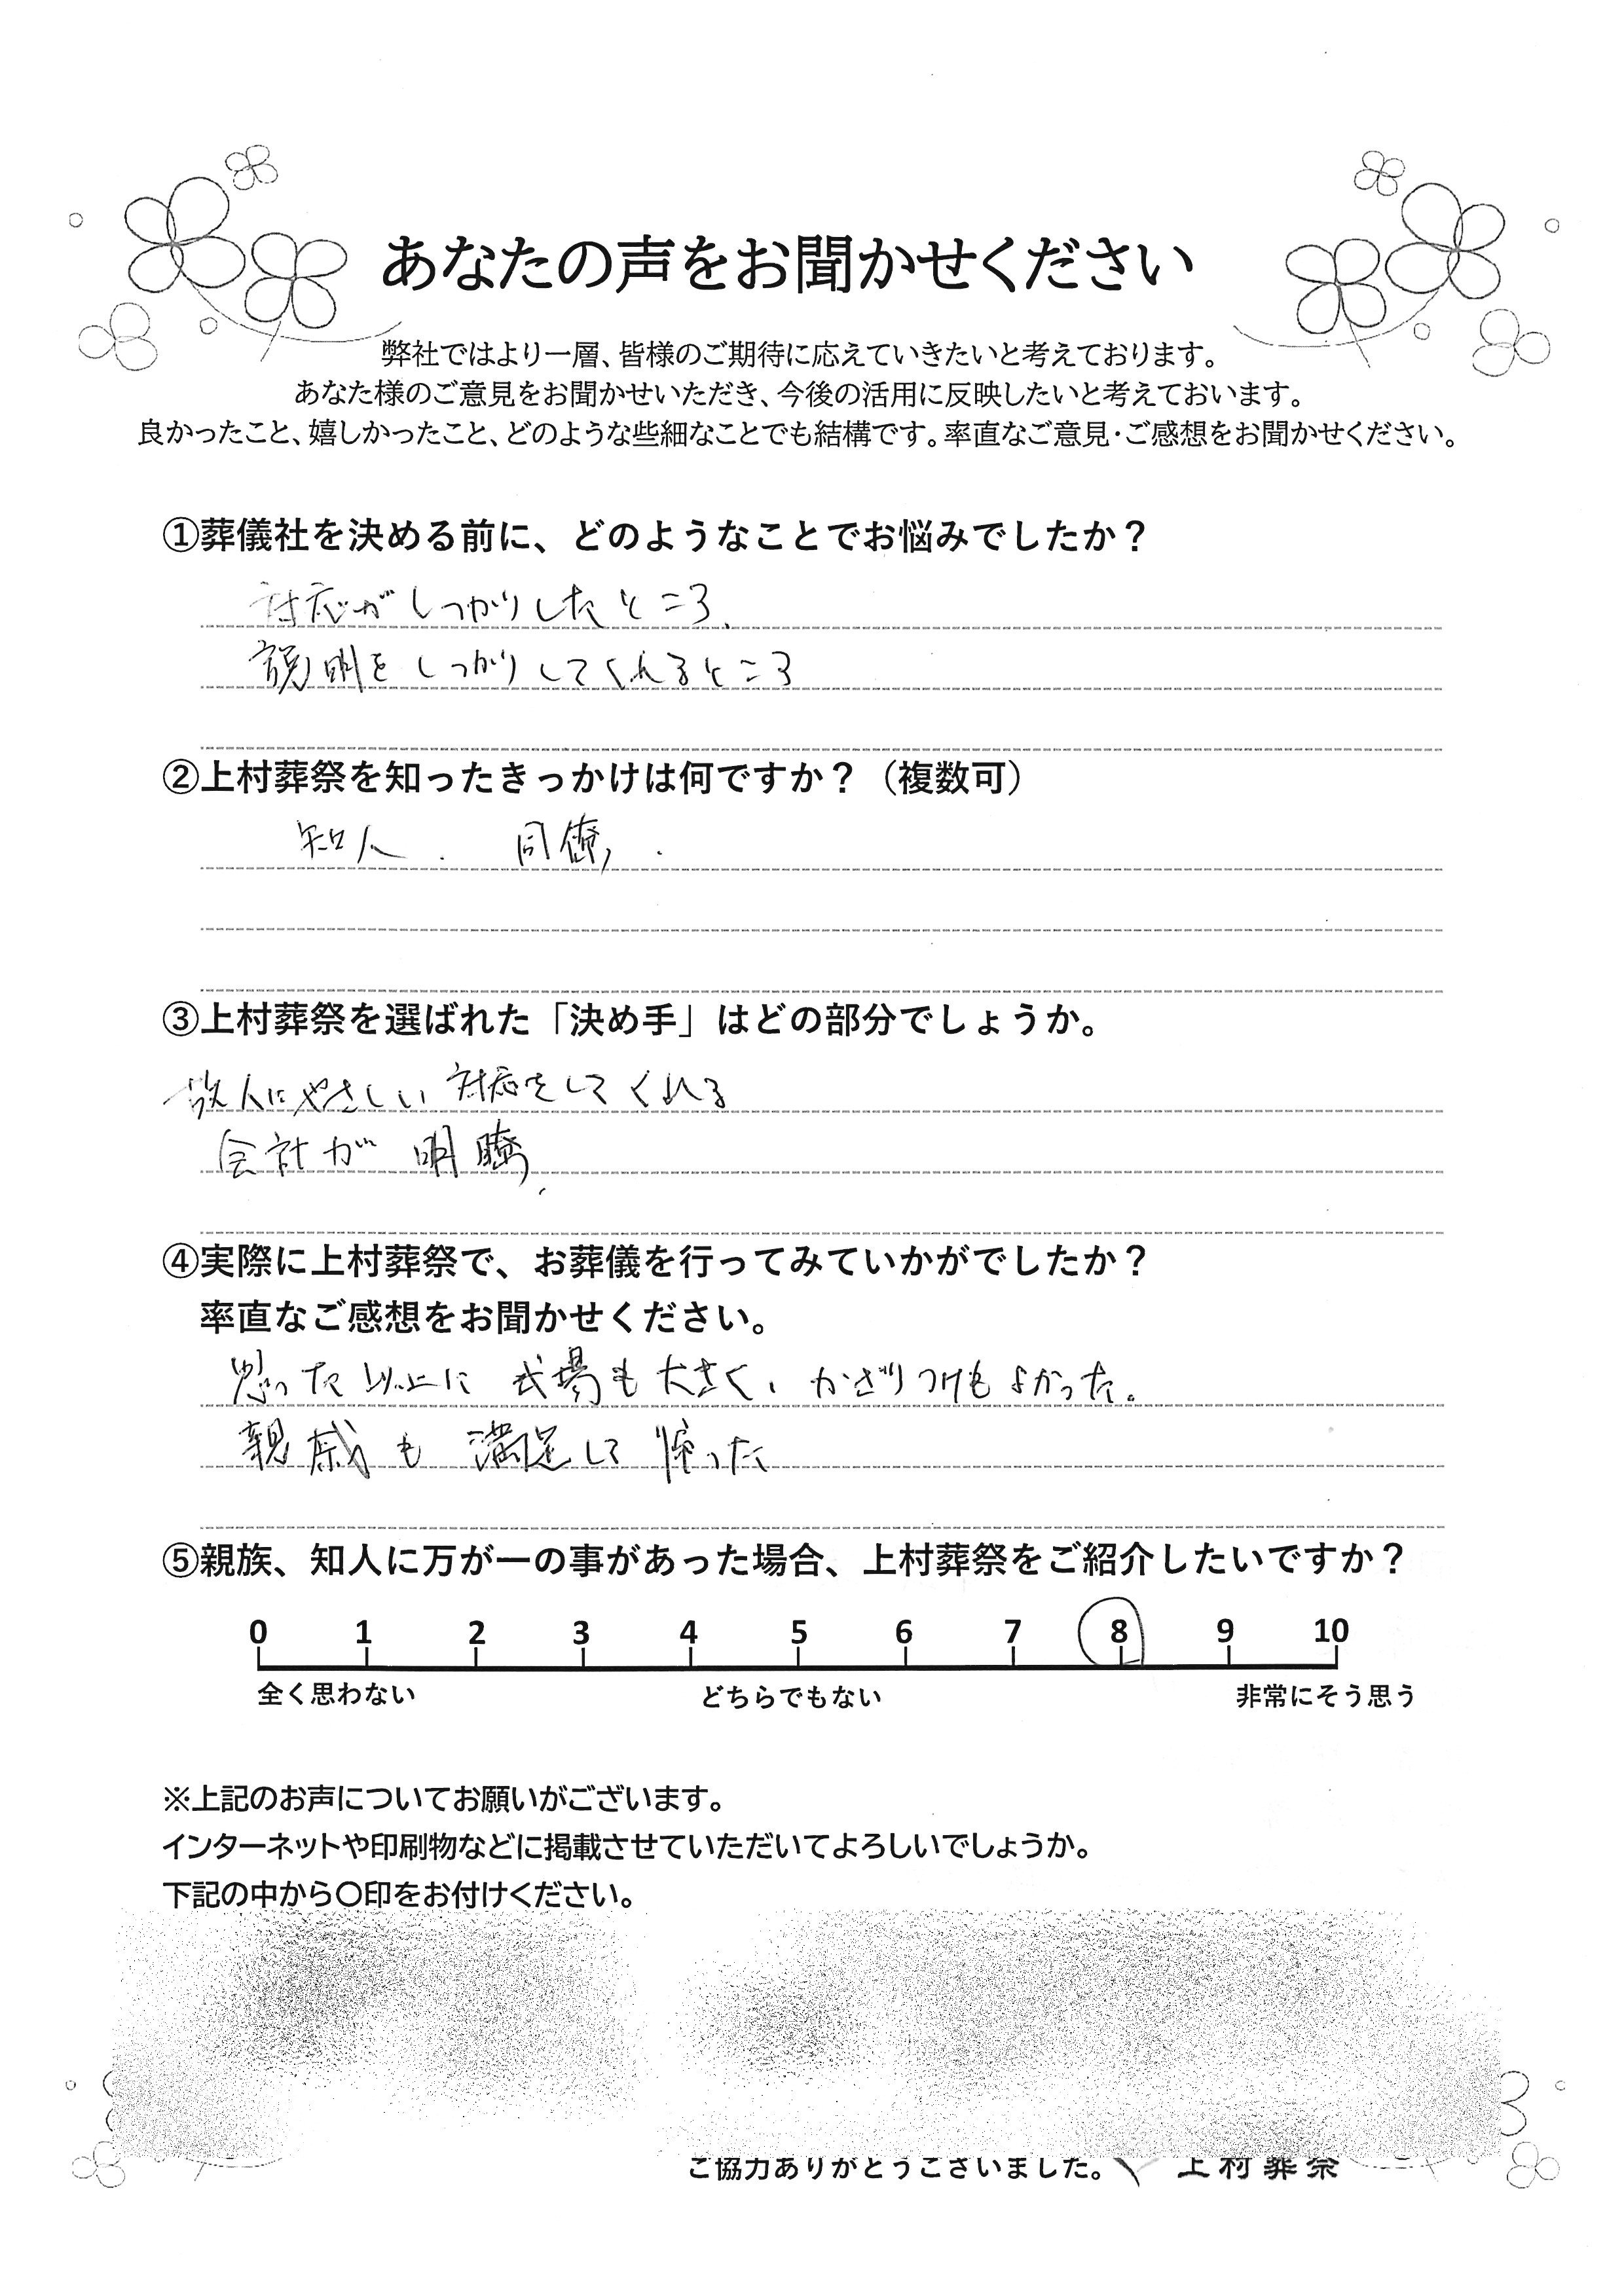 あなたの声をお聞かせください
弊社ではより一層、皆様のご期待に応えていきたいと考えております。
あなた様のご意見をお聞かせいただき、今後の活用に反映したいと考えておいます。
良かったこと、嬉しかったこと、どのような些細なことでも結構です。率直なご意見・ご感想をお聞かせください。
①葬儀社を決める前に、どのようなことでお悩みでしたか？
対応がしっかりしたところ、
説明をしっかりしてくれるところ
②上村葬祭を知ったきっかけは何ですか？（複数可）
知人. 同僚.
③上村葬祭を選ばれた「決め手」はどの部分でしょうか。
故人にやさしい対応をしてくれる
会計が明瞭、
④実際に上村葬祭で、お葬儀を行ってみていかがでしたか？
率直なご感想をお聞かせください。
思った以上に式場も大きく、かざりつけもよかった。
親戚も満足して帰った
⑤親族、知人に万が一の事があった場合、上村葬祭をご紹介したいですか？
0 1 2 3 4 5 6 7 8 9 10
全く思わない どちらでもない 非常にそう思う
※上記のお声についてお願いがございます。
インターネットや印刷物などに掲載させていただいてよろしいでしょうか。
下記の中から〇印をお付けください。
ご協力ありがとうございました。 上村葬祭